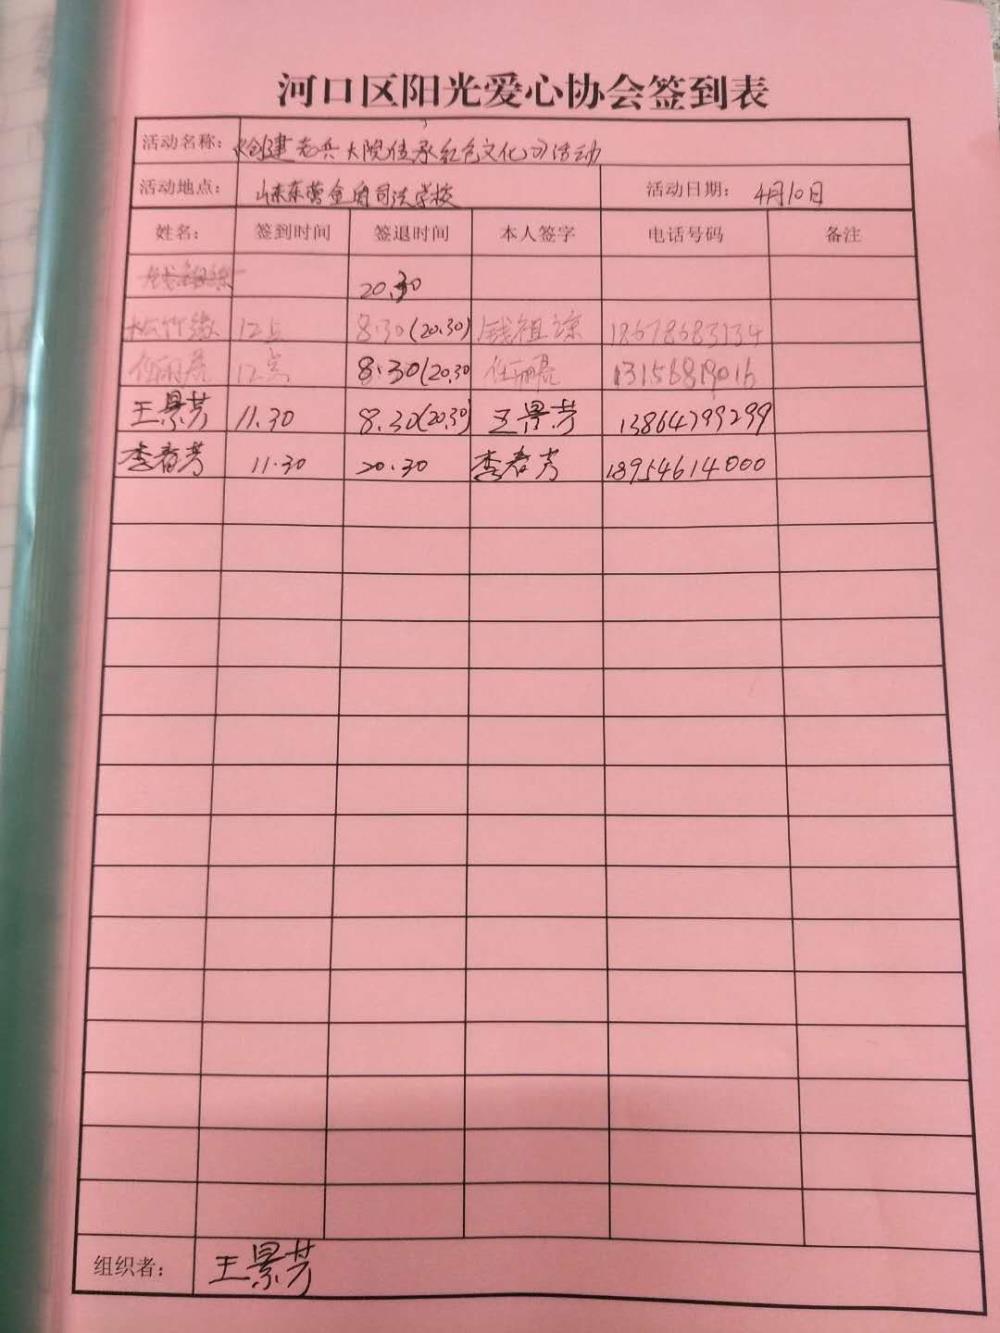 河口区阳光爱心协会签到表
活动名称：《创建老兵大院传承红色文化》活动
活动地点：山东东营金盾司法学校 活动日期：4月10日
姓名： 签到时间 签退时间 本人签字 电话号码 备注
20.30
松竹缘 12点 8:30(20.30) 钱祖谅 18678683134
任丽亮 12点 8:30(20.30 任丽亮 13156819016
王景芳 11.30 8.30(20.30) 王景芳 13864799299
李春芳 11.30 20.30 李春芳 18954614000
组织者： 王景芳